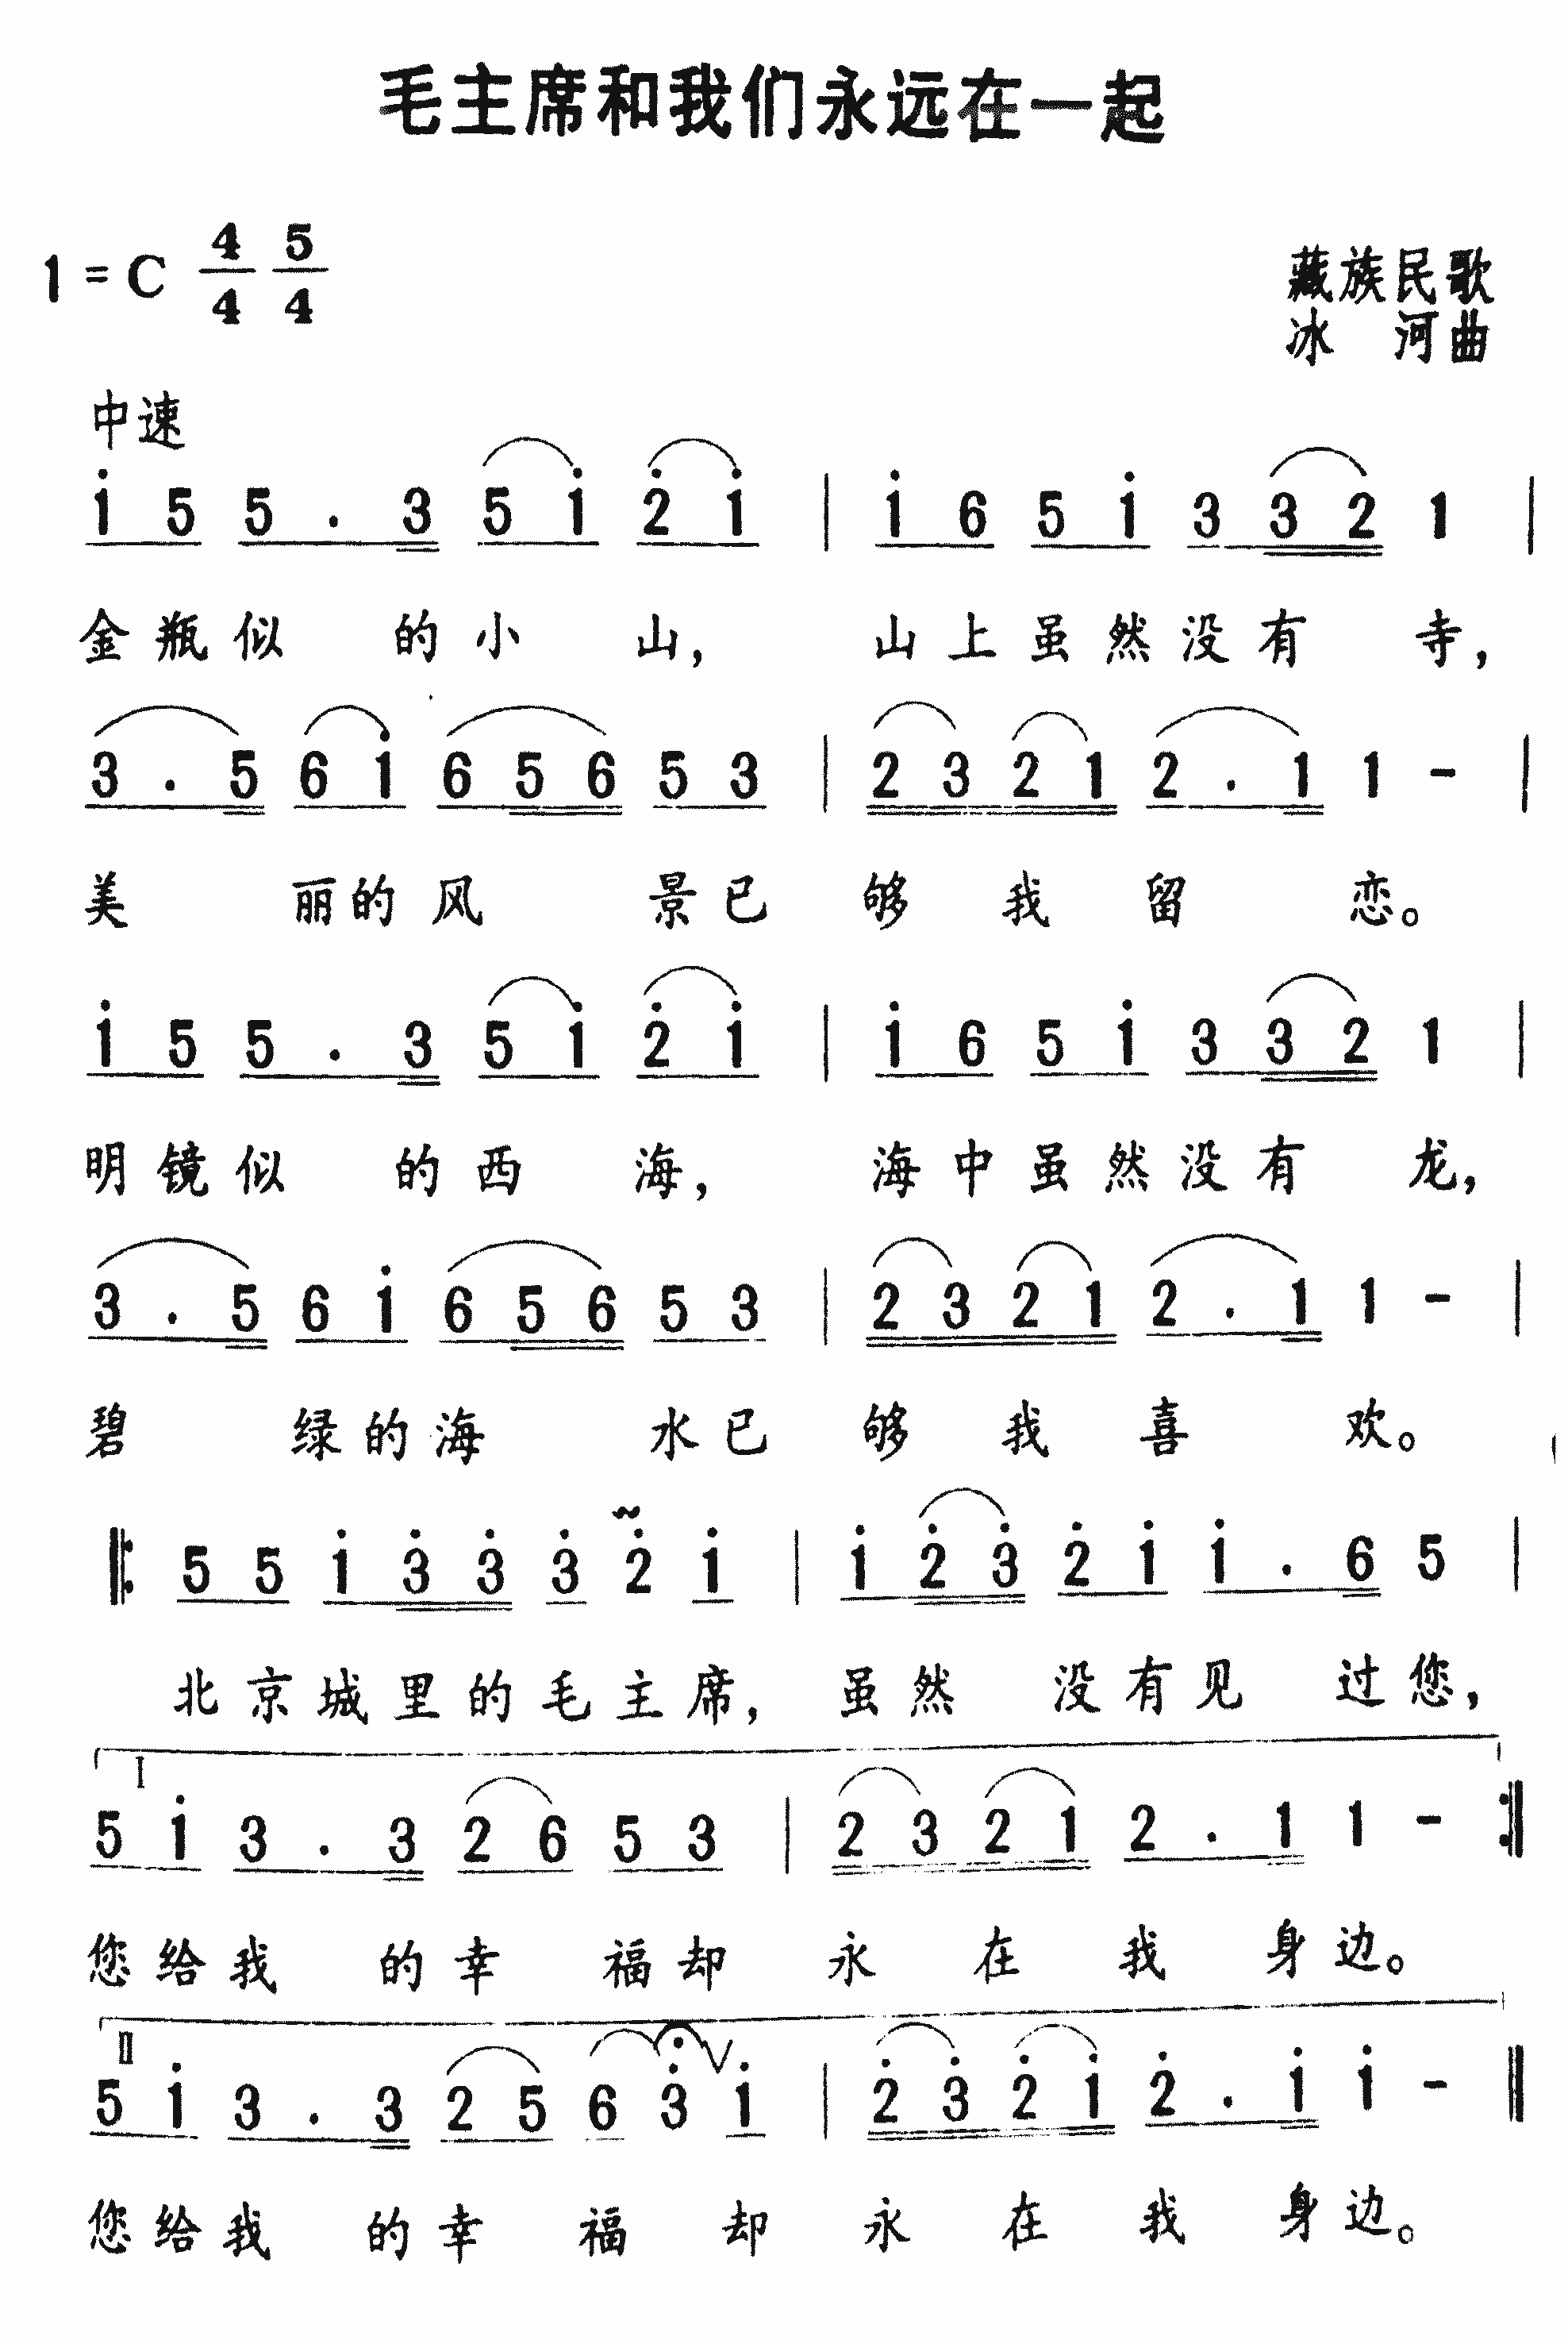 毛主席和我们永远在一起
1 = C 4/4 5/4
藏族民歌
冰 河曲
中速
i 5 5 . 3 5 i 2̇ i | i 6 5 i 3 3 2 1 |
金瓶似 的小 山， 山上虽然没有 寺，
3 . 5 6 i 6 5 6 5 3 | 2 3 2 1 2 . 1 1 - |
美 丽的风 景已 够 我 留 恋。
i 5 5 . 3 5 i 2̇ i | i 6 5 i 3 3 2 1 |
明镜似 的西 海， 海中虽然没有 龙，
3 . 5 6 i 6 5 6 5 3 | 2 3 2 1 2 . 1 1 - |
碧 绿的海 水已 够 我 喜 欢。
‖: 5 5 i 3̇ 3̇ 3̇ 2̇ i | i 2̇ 3̇ 2̇ i i . 6 5 |
北京城里的毛主席， 虽然 没有见 过您，
I
5 i 3 . 3 2 6 5 3 | 2 3 2 1 2 . 1 1 - :‖
您给我 的幸 福却 永 在 我 身边。
II
5 i 3 . 3 2 5 6 3̇ i | 2̇ 3̇ 2̇ i 2̇ . i i - ‖
您给我 的幸 福 却 永 在 我 身边。